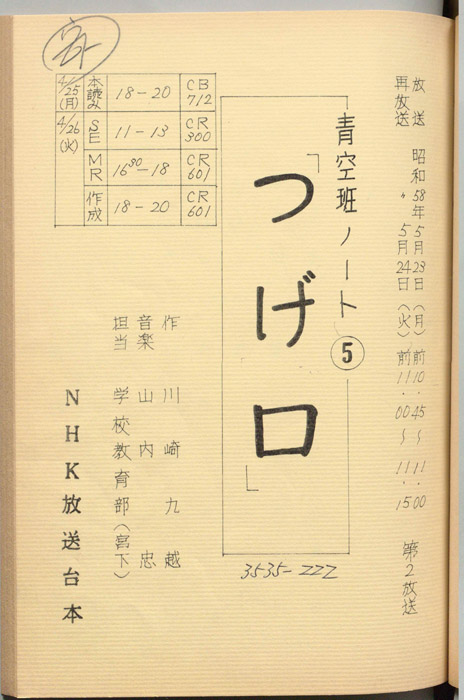 放送 昭和58年5月23日(月)前10・45〜11・00
再放送 〃 5月24日(火)前11・00〜11・15 第2放送
青空班ノート⑤
「つげ口」
3535-222
4/25(月) 本読み 18-20 CB712
4/26(火) SE 11-13 CR300
MR 16³⁰-18 CR601
作成 18-20 CR601
作 川崎九越
音楽 山内忠
担当 学校教育部(宮下)
NHK放送台本